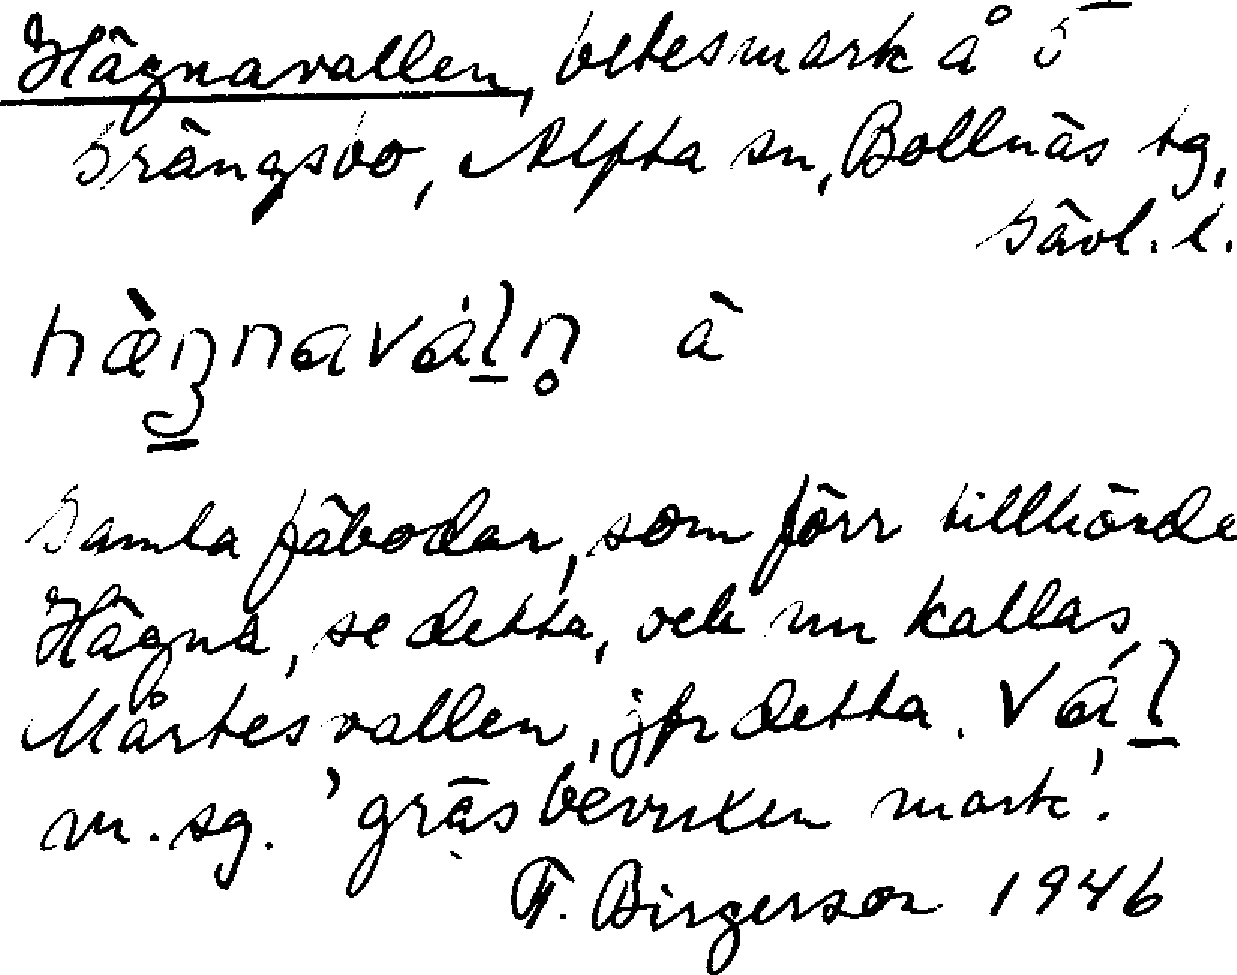 Hägnavallen, betesmark å Ö
Grängsbo, Alfta sn, Bollnäs tg,
Gävl. l.
hæ̀ŋnavál̲n̥ à
Gamla fäbodar, som förr tillhörde
Hägna, se detta, och nu kallas
Mårtesvallen, jfr detta. vál̲
m. sg. 'gräsbevuxen mark'.
F. Birgerson 1946